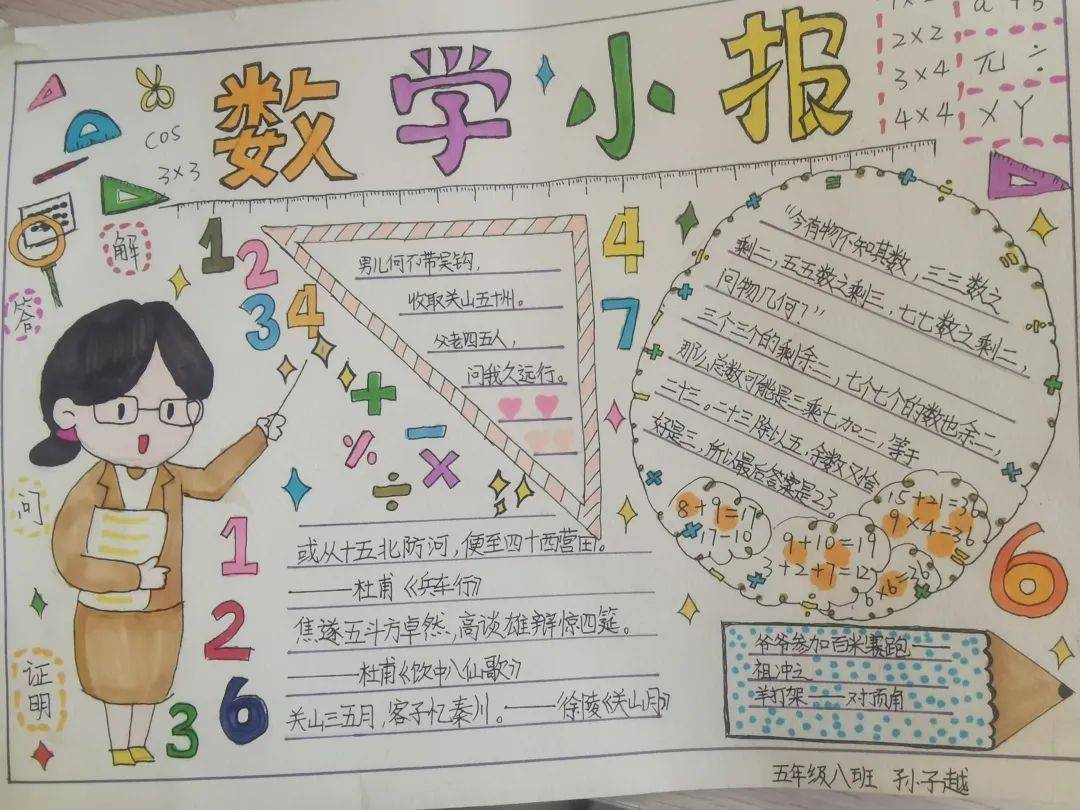 数学小报
cos
3×3
1×2
2×2
3×4
4×4
a + b
π ÷
X Y
解
答
问
证明
1
2
3
4
男儿何不带吴钩,
收取关山五十州。
父老四五人,
问我久远行。
4
7
+
%
-
÷
×
"今有物不知其数,三三数之
剩二,五五数之剩三,七七数之剩二,
问物几何?"
三个三个的剩余二,七个七个的数也余二,
那么总数可能是三乘七加二,等于
二十三。二十三除以五,余数又恰
好是三,所以最后答案是23。
8+9=17
17-10
9+10=19
3+2+7=12
15+21=36
9×4=36
6
1
2
3
6
或从十五北防河,便至四十西营田。
——杜甫《兵车行》
焦遂五斗方卓然,高谈雄辩惊四筵。
——杜甫《饮中八仙歌》
关山三五月,客子忆秦川。——徐陵《关山月》
爷爷参加百米赛跑——
祖冲之
羊打架——对顶角
五年级八班 孙子越